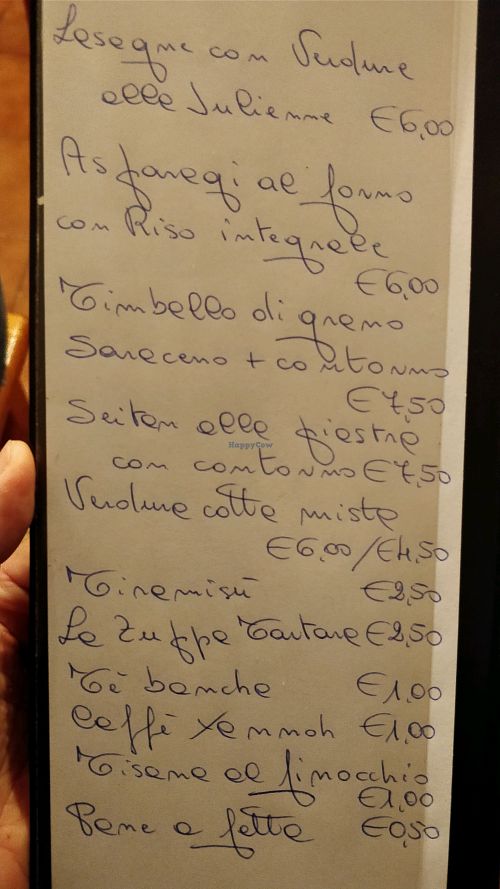 Lasagne con Verdure
alla Julienne €6,00
Asparagi al forno
con Riso integrale
€6,00
Timballo di grano
Saraceno + contorno
€7,50
Seitan alla piastra
HappyCow
con contorno €7,50
Verdure cotte miste
€6,00/€4,50
Tiramisù €2,50
La Zuppa Tartara €2,50
Tè bancha €1,00
Caffè Yannoh €1,00
Tisana al finocchio
€1,00
Pane a fette €0,50